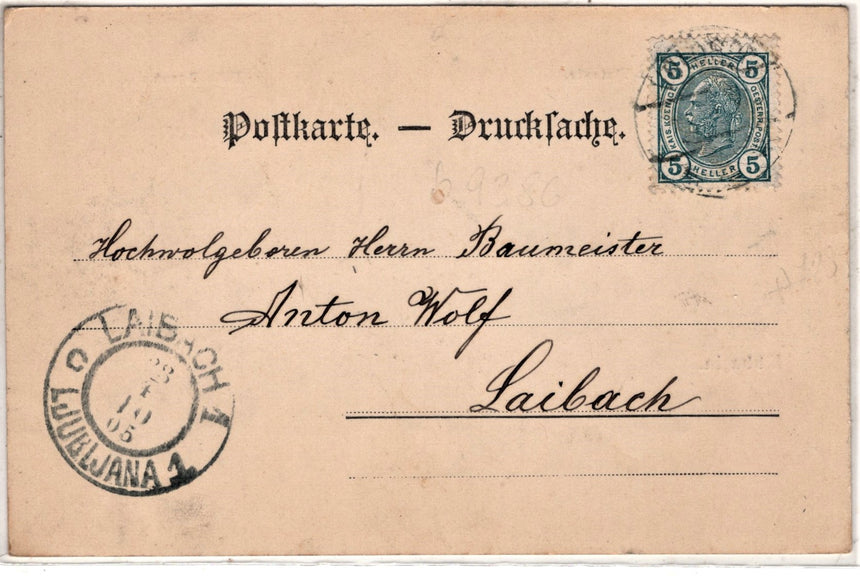 Postkarte. — Drucksache.
5 HELLER 5
KAIS. KOENIGL. OESTERR. POST.
5 HELLER 5
69286
Hochwolgeboren Herrn Baumeister
Anton Wolf
Laibach
LAIBACH 1
23
10
05
LJUBLJANA 1